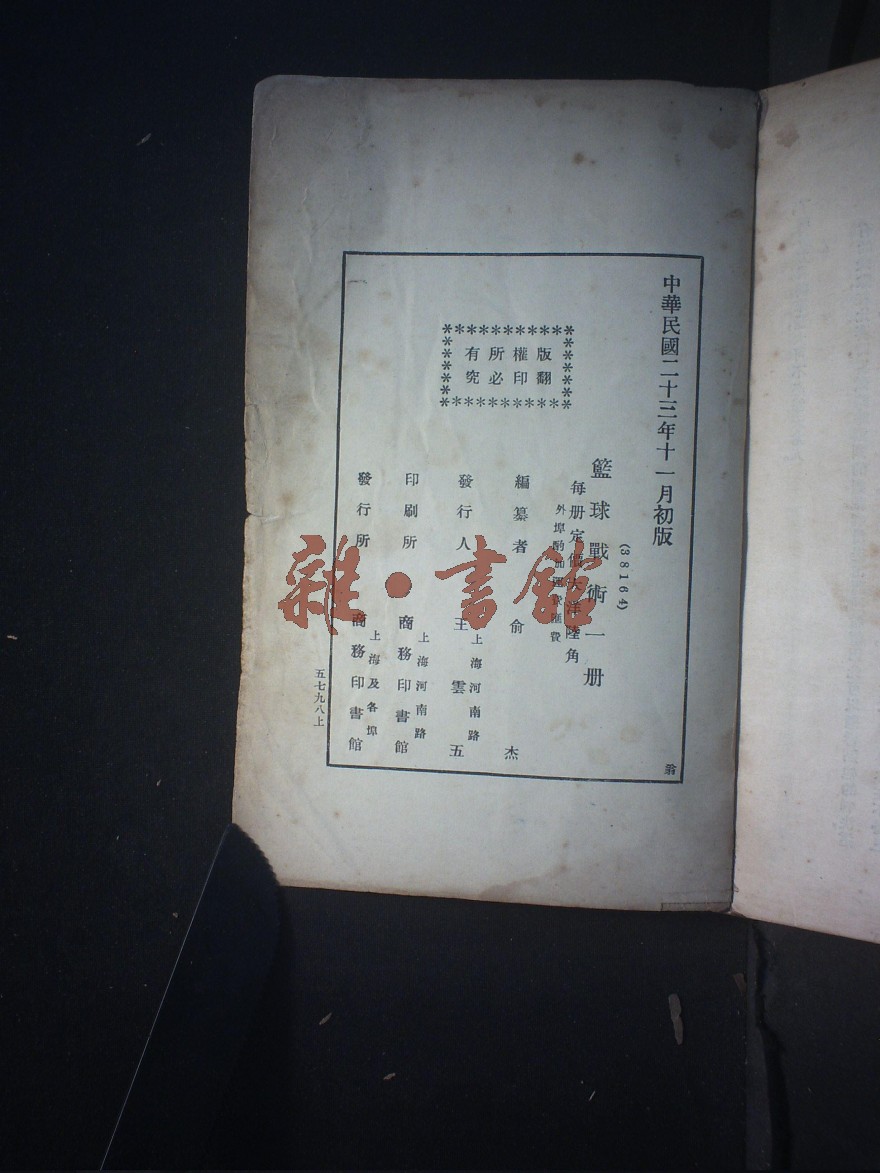 中華民國二十三年十一月初版
(38164)
籃球戰術一册
每册定價大洋陸角
外埠酌加運費匯費
版權所有
翻印必究
編纂者 俞杰
發行人 王雲五
上海河南路
印刷所 商務印書館
上海河南路
發行所 商務印書館
上海及各埠
五七九八上
雜·書館